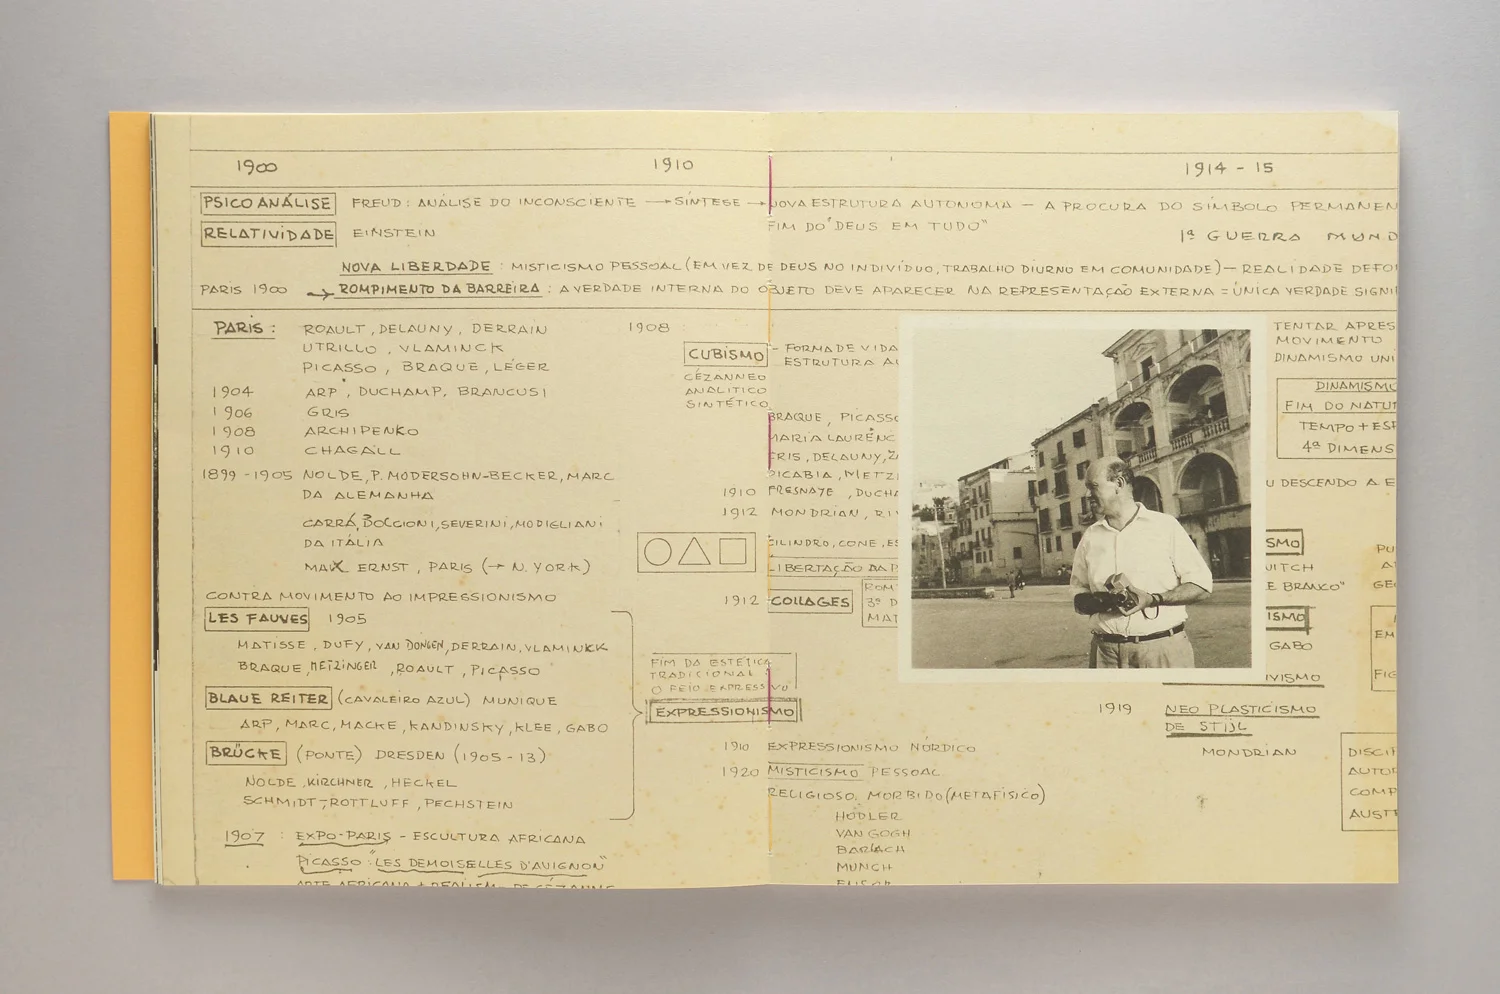 1900 1910 1914 - 15
PSICO ANÁLISE FREUD: ANÁLISE DO INCONSCIENTE → SÍNTESE → NOVA ESTRUTURA AUTONOMA — A PROCURA DO SÍMBOLO PERMANEN
FIM DO "DEUS EM TUDO"
RELATIVIDADE EINSTEIN 1ª GUERRA MUND
NOVA LIBERDADE : MISTICISMO PESSOAL (EM VEZ DE DEUS NO INDIVÍDUO, TRABALHO DIURNO EM COMUNIDADE) — REALIDADE DEFO
PARIS 1900 → ROMPIMENTO DA BARREIRA : A VERDADE INTERNA DO OBJETO DEVE APARECER NA REPRESENTAÇÃO EXTERNA = ÚNICA VERDADE SIGNI
PARIS : ROAULT, DELAUNY, DERRAIN
UTRILLO, VLAMINCK
PICASSO, BRAQUE, LÉGER
1904 ARP, DUCHAMP, BRANCUSI
1906 GRIS
1908 ARCHIPENKO
1910 CHAGALL
1899 - 1905 NOLDE, P. MODERSOHN-BECKER, MARC
DA ALEMANHA
CARRÁ, BOCCIONI, SEVERINI, MODIGLIANI
DA ITÁLIA
MAX ERNST, PARIS (→ N. YORK)
CONTRA MOVIMENTO AO IMPRESSIONISMO
LES FAUVES 1905
MATISSE, DUFY, VAN DONGEN, DERRAIN, VLAMINKK
BRAQUE, METZINGER, ROAULT, PICASSO
BLAUE REITER (CAVALEIRO AZUL) MUNIQUE
ARP, MARC, MACKE, KANDINSKY, KLEE, GABO
BRÜCKE (PONTE) DRESDEN (1905 - 13)
NOLDE, KIRCHNER, HECKEL
SCHMIDT-ROTTLUFF, PECHSTEIN
1907 : EXPO-PARIS - ESCULTURA AFRICANA
PICASSO "LES DEMOISELLES D'AVIGNON"
1908
CUBISMO - FORMA DE VIDA
ESTRUTURA AU
CÉZANNEO
ANALITICO
SINTÉTICO
BRAQUE, PICASSO
MARIA LAURENC
GRIS, DELAUNY,
PICABIA, METZI
1910 FRESNAYE, DUCHA
1912 MONDRIAN,
CILINDRO, CONE, ES
LIBERTAÇÃO DA
1912 COLLAGES
ROM
3ª D
MAT
FIM DA ESTÉTICA
TRADICIONAL
O FEIO EXPRESSIVO
EXPRESSIONISMO
1910 EXPRESSIONISMO NÓRDICO
1920 MISTICISMO PESSOAL
RELIGIOSO, MORBIDO (METAFÍSICO)
HODLER
VAN GOGH
BARLACH
MUNCH
TENTAR APRES
MOVIMENTO
DINAMISMO UNI
DINAMISMO
FIM DO NATUR
TEMPO + ESP
4ª DIMENS
U DESCENDO A E
SMO
VITCH
E BRANCO"
ISMO
GABO
IVISMO
PU
GEO
EM
FIG
1919 NEO PLASTICISMO
DE STIJL
MONDRIAN
DISCI
AUTOR
COMP
AUST